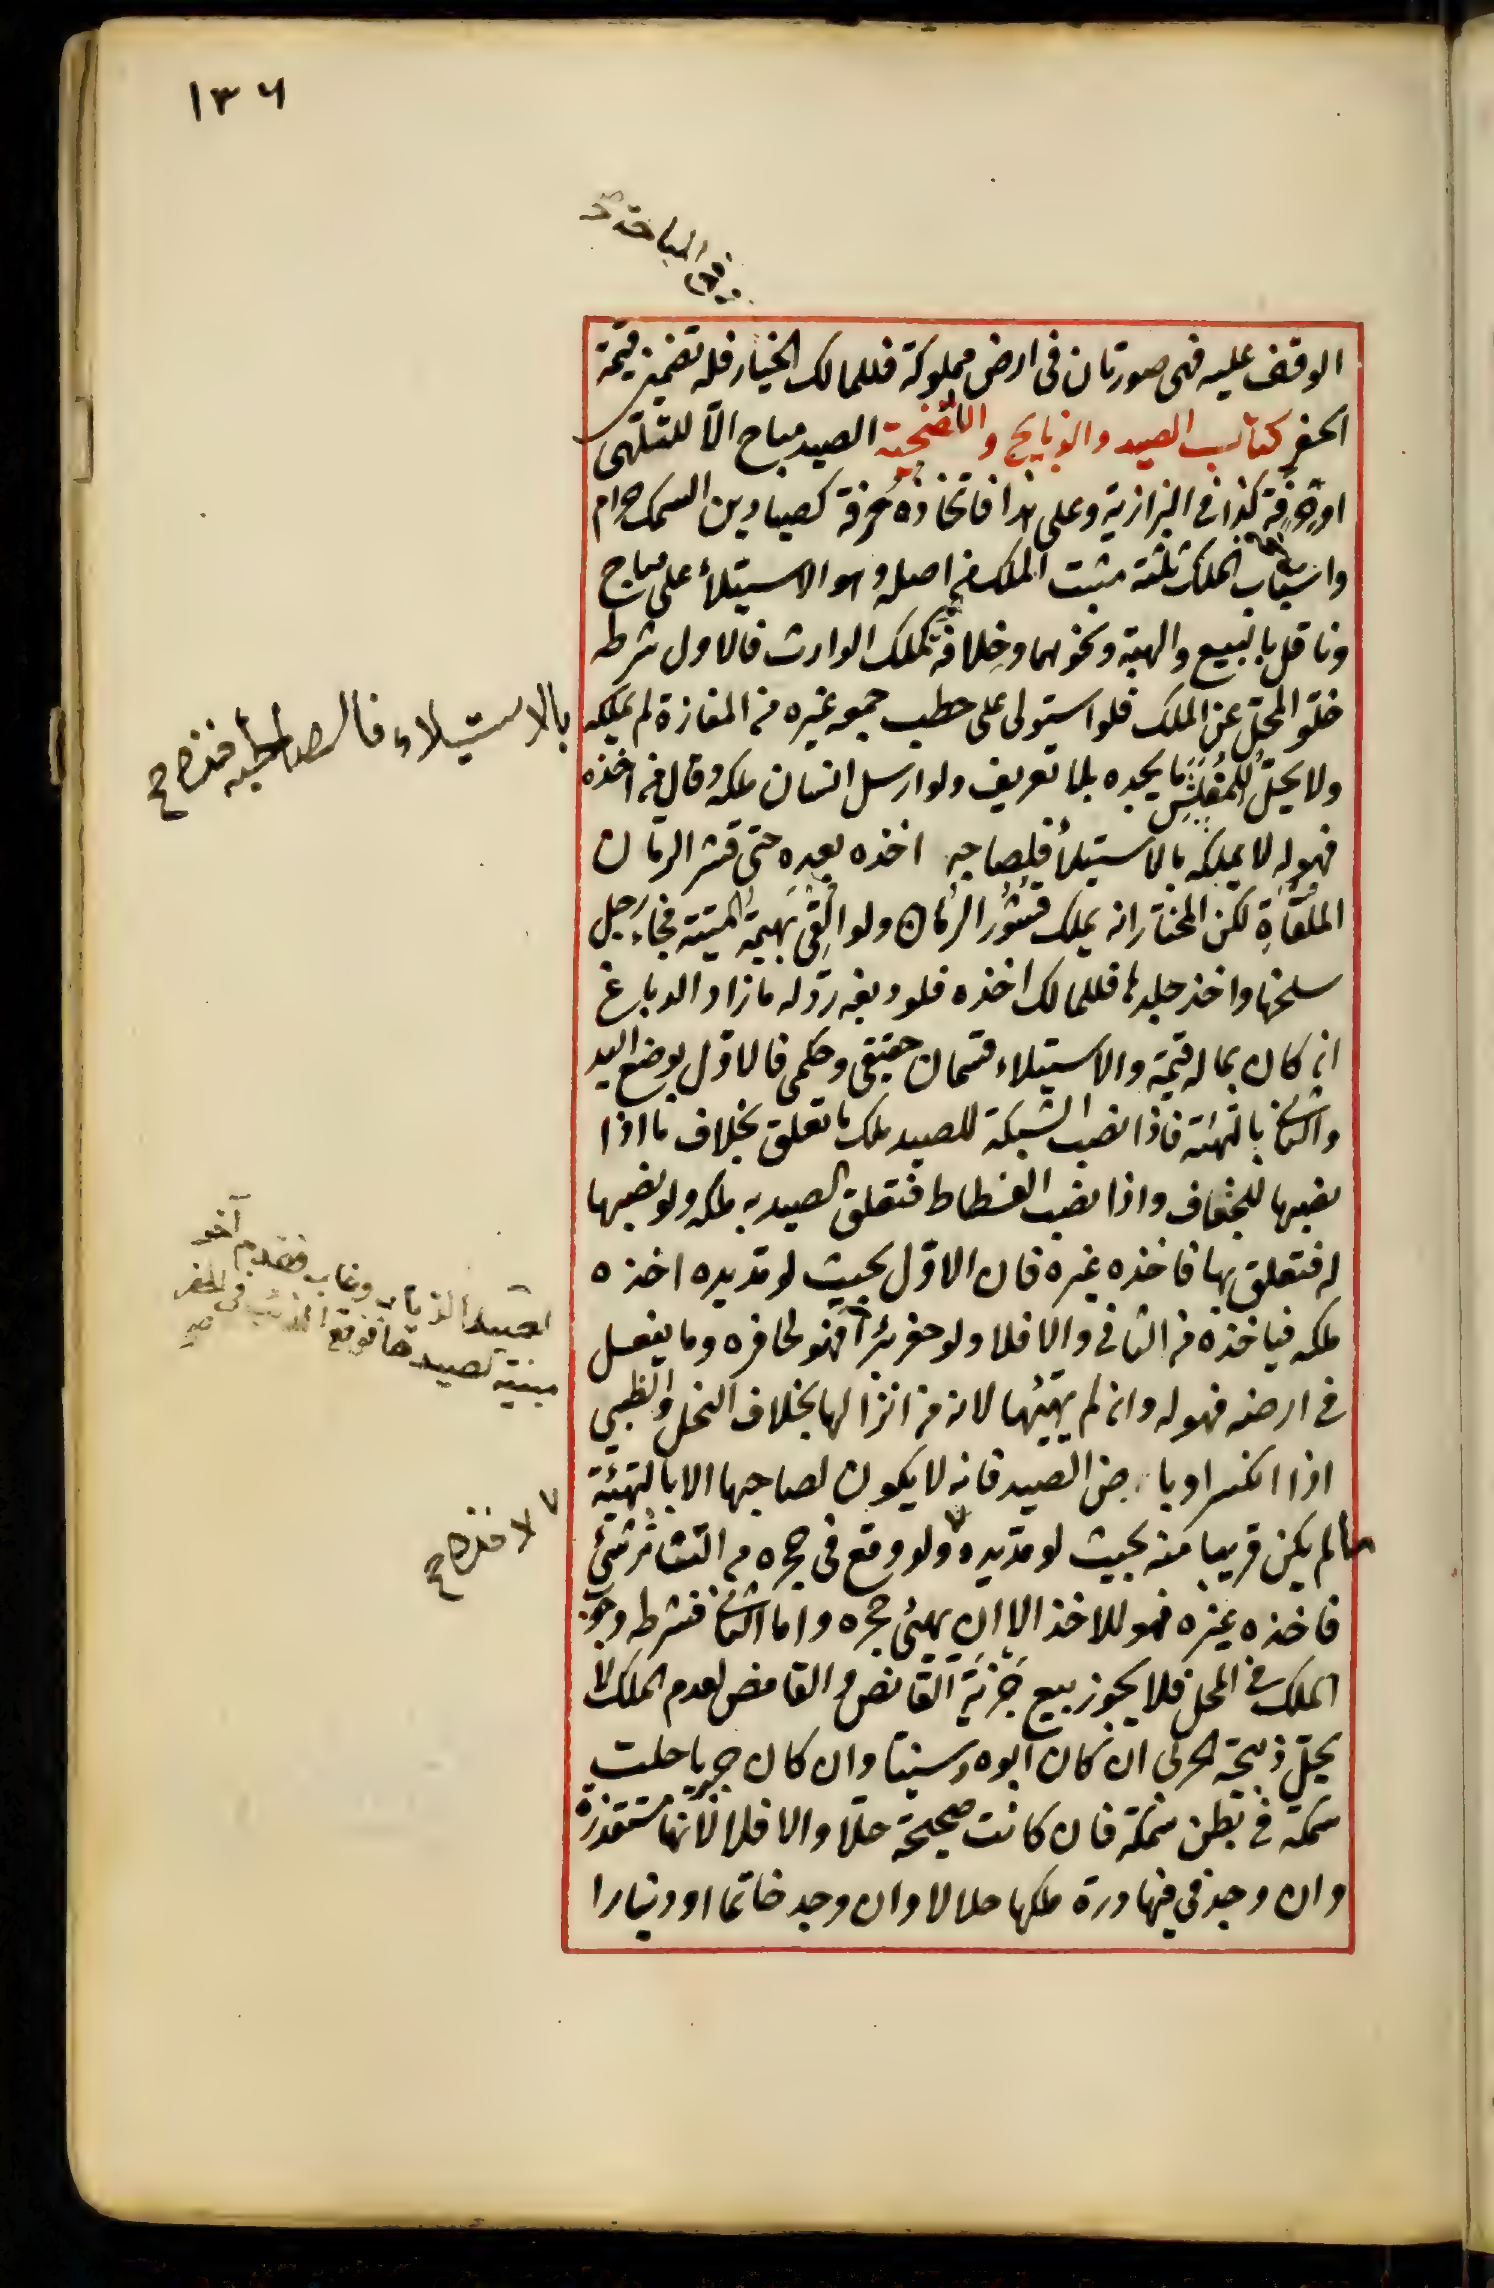 ١٣٦
وفي المباحة
الوقف عليه فهي صورتان في ارض مملوكة فللمالك الخيار فله تضمين قيمة
الحفر كتاب الصيد والذبايح والاضحية الصيد مباح الّا للتلهى
او حرفة كذا في البزازية وعلى هذا فاتخاذه حرفة كصيادين السمك حرام
واسباب الملك ثلثة مثبت الملك من اصله وهو الاستيلاء على مباح
وناقل بالبيع والهبة ونحوهما وخلافة كملك الوارث فالاول شرطه
خلّو المحلّ عن الملك فلو استولى على حطب جمعه غيره من المفازة لم يملكه
بالاستيلاء
ولا يحلّ للمقلّش ما يجده بلا تعريف ولو ارسل انسان ملكه وقال من اخذه
فهو له لا يملكه بالاستيلاء فلصاحبه اخذه بعده حتى قشر الرمان
الملقاة لكن المختار انه يملك قشور الرمان ولو القى بهيمة الميتة فجاء رجل
سلخها واخذ جلدها فللمالك اخذه فلو دبغه ردّ له ما زاد الدباغ
ان كان بما له قيمة والاستيلاء قسمان حقيقى وحكمى فالاوّل بوضع اليد
والثانى بالتهيئة فاذا نصب الشبكة للصيد ملك ما تعلق بخلاف ما اذا
نصبها للجفاف واذا نصب الفسطاط فتعلق الصيد به ملكه ولو نصبها
له فتعلق بها فاخذه غيره فان الاوّل بحيث لو مدّ يده اخذه
ملكه فياخذه من الثانى والا فلا ولو حفر بئرا فهو لحافره وما يعسل
لصيد الذياب وغاب فقدم آخر
مبنية لصيدها فوقع الذئب في الحفر
في ارضه فهو له وان لم يهيّئها لانه من انزالها بخلاف النحل والظبى
اذا انكسر او باض الصيد فانه لا يكون لصاحبها الا بالتهيئة
ما لم يكن قريبا منه بحيث لو مدّ يده ولو وقع في حجره من النثار شئ
لاخذه صح
فاخذه غيره فهو للاخذ الا ان يهيئ حجره واما الثانى فشرطه وجود
الملك في المحل فلا يجوز بيع ضربة القانص والغائص لعدم الملك لا
يحلّ ذبيحة الجبرى ان كان ابوه سنيّا وان كان جبريا حلت
سمكة في بطن سمكة فان كانت صحيحة حلّا والا فلا لانها مستقذرة
وان وجد في فيها درة ملكها حلالا وان وجد خاتما او دينارا